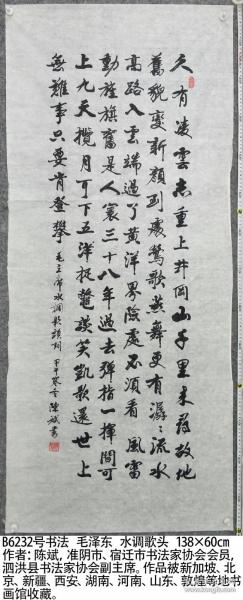 久有凌雲志重上井岡山千里来尋故地
舊貌變新顔到處鶯歌燕舞更有潺潺流水
高路入雲端過了黄洋界險處不須看風雷
動旌旗奮是人寰三十八年過去彈指一揮間可
上九天攬月可下五洋捉鱉談笑凱歌還世上
無難事只要肯登攀 毛主席水调歌頭詞 甲午寒冬 陳斌書
B6232号书法 毛泽东 水调歌头 138×60cm
作者:陈斌,准阴市、宿迁市书法家协会会员,
泗洪县书法家协会副主席。作品被新加坡、北
京、新疆、西安、湖南、河南、山东、敦煌等地书
画馆收藏。